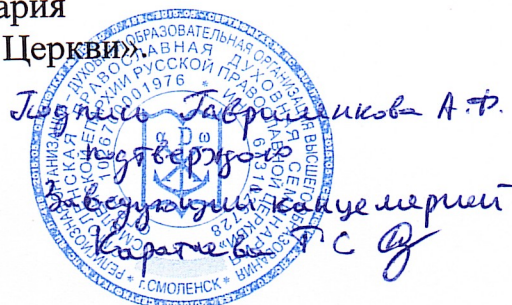 ария
Церкви».
Подпись Гавриленкова А.Ф.
подтверждаю
Заведующий канцелярией
Каратаева Г С
РЕЛИГИОЗНАЯ ОРГАНИЗАЦИЯ ДУХОВНАЯ ОБРАЗОВАТЕЛЬНАЯ ОРГАНИЗАЦИЯ ВЫСШЕГО ОБРАЗОВАНИЯ
ПРАВОСЛАВНАЯ ДУХОВНАЯ СЕМИНАРИЯ
ЕПАРХИИ РУССКОЙ ПРАВОСЛАВНОЙ ЦЕРКВИ»
* Г.СМОЛЕНСК *